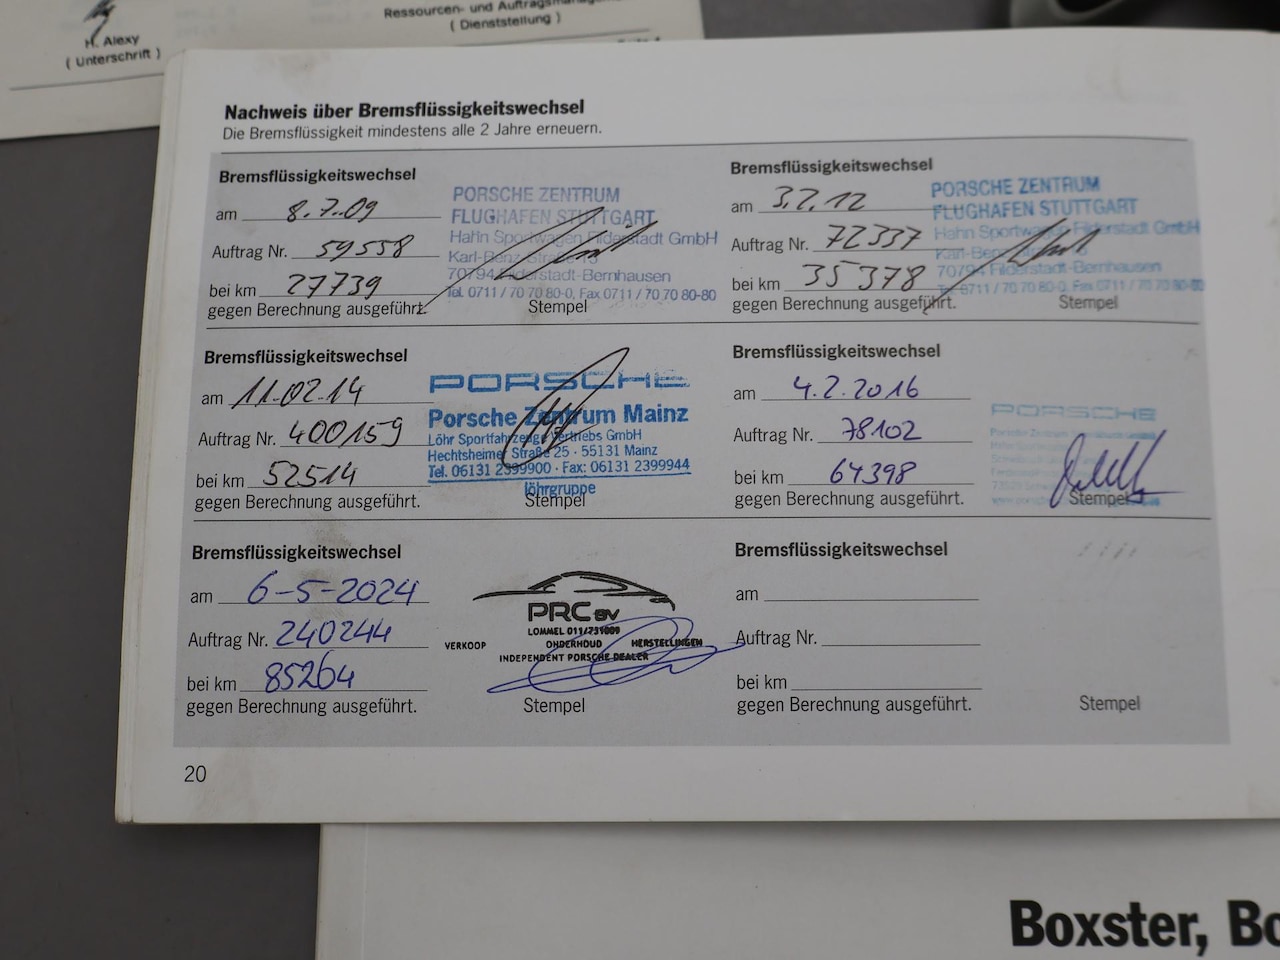 H. Alexy
( Unterschrift )
Ressourcen- und
( Dienststellung )
Nachweis über Bremsflüssigkeitswechsel
Die Bremsflüssigkeit mindestens alle 2 Jahre erneuern.
Bremsflüssigkeitswechsel
am 8.7.09
Auftrag Nr. 59558
bei km 27739
gegen Berechnung ausgeführt.
PORSCHE ZENTRUM
FLUGHAFEN STUTTGART
Hahn Sportwagen Filderstadt GmbH
Karl-Benz-Straße
70794 Filderstadt-Bernhausen
Tel. 0711 / 70 70 80-0, Fax 0711 / 70 70 80-80
Stempel
Bremsflüssigkeitswechsel
am 3.2.12
Auftrag Nr. 72337
bei km 35378
gegen Berechnung ausgeführt.
PORSCHE ZENTRUM
FLUGHAFEN STUTTGART
Hahn Sportwagen Filderstadt GmbH
70794 Filderstadt-Bernhausen
Tel. 0711 / 70 70 80-0, Fax 0711 / 70 70 80-80
Stempel
Bremsflüssigkeitswechsel
am 11.02.14
Auftrag Nr. 400159
bei km 52514
gegen Berechnung ausgeführt.
PORSCHE
Porsche Zentrum Mainz
Löhr Sportfahrzeug Vertriebs GmbH
Hechtsheimer Straße 25 · 55131 Mainz
Tel. 06131 2399900 · Fax: 06131 2399944
löhrgruppe
Stempel
Bremsflüssigkeitswechsel
am 4.2.2016
Auftrag Nr. 78102
bei km 64398
gegen Berechnung ausgeführt.
PORSCHE
Stempel
Bremsflüssigkeitswechsel
am 6-5-2024
Auftrag Nr. 240244
bei km 85264
gegen Berechnung ausgeführt.
PRC BV
LOMMEL 011/731009
VERKOOP ONDERHOUD HERSTELLINGEN
INDEPENDENT PORSCHE DEALER
Stempel
Bremsflüssigkeitswechsel
am
Auftrag Nr.
bei km
gegen Berechnung ausgeführt.
Stempel
20
Boxster,